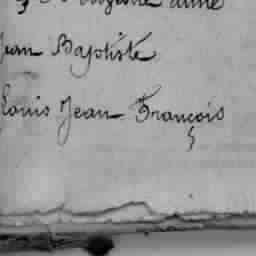 Jean Baptiste
Louis Jean François